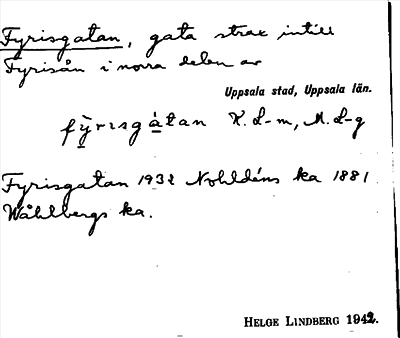 Fyrisgatan, gata strax intill
Fyrisån i norra delen av
Uppsala stad, Uppsala län.
fỳrɩsgàtan K. L-m, M. L-g
Fyrisgatan 1932 Nohldéns ka 1881
Wåhlbergs ka.
HELGE LINDBERG 1942.